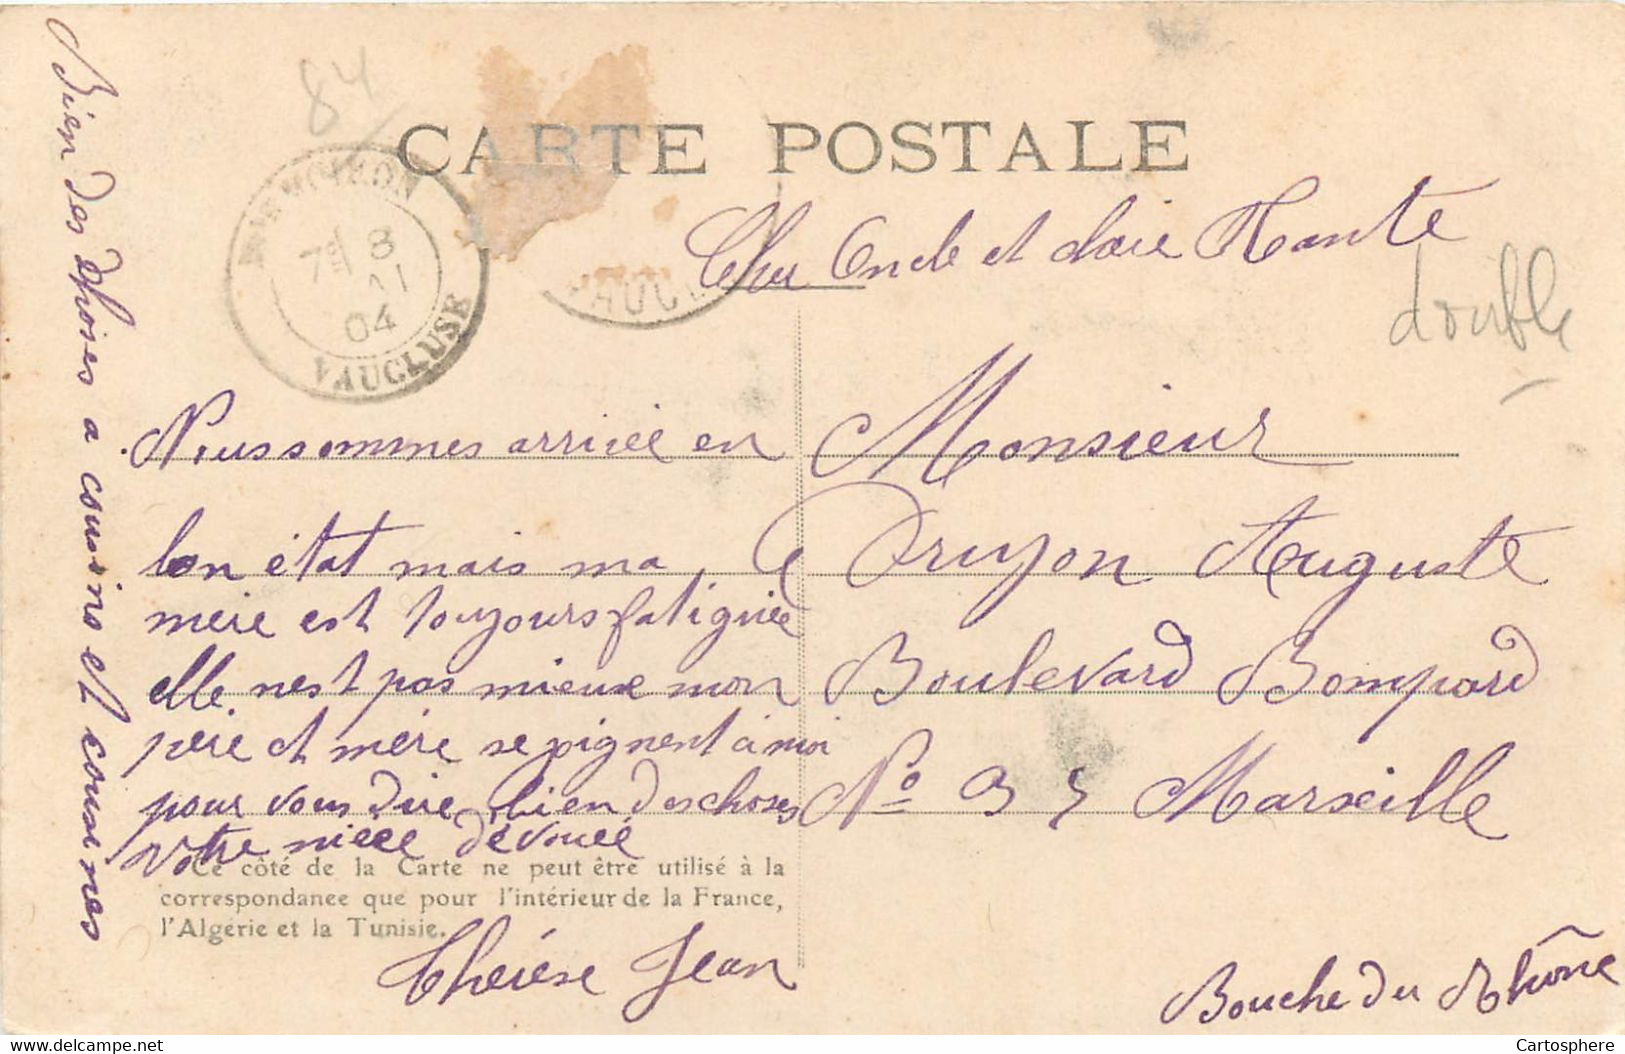 84
CARTE POSTALE
MOIRON
7E 8
04
VAUCLUSE
VAUCL
Cher Oncle et chaie Tante
double
Nous sommes arrivée en
bon état mais ma
mère est toujours fatiguée
elle n'est pas mieux mon
père et mère se joignent à moi
pour vous dire bien des choses
Votre niece dévouée
Thérèse Jean
Bien des choses a cousins et cousines
Monsieur
Druyon Auguste
Boulevard Bompard
No 35 Marseille
Bouche du Rhône
Ce côté de la Carte ne peut être utilisé à la
correspondance que pour l'intérieur de la France,
l'Algérie et la Tunisie.
www.delcampe.net
Cartosphere